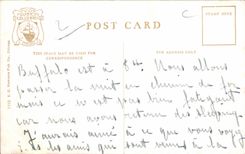 POST CARD
THIS SPACE MAY BE USED FOR CORRESPONDENCE
THE ADDRESS ONLY
Buffalo est à 8 h. Nous allons
passer la nuit en chemin de fer
mais ce n'est pas bien fatigant
car nous avons retenu des
J'aurais aimé à ce que vous
les amis qui sont venus à la